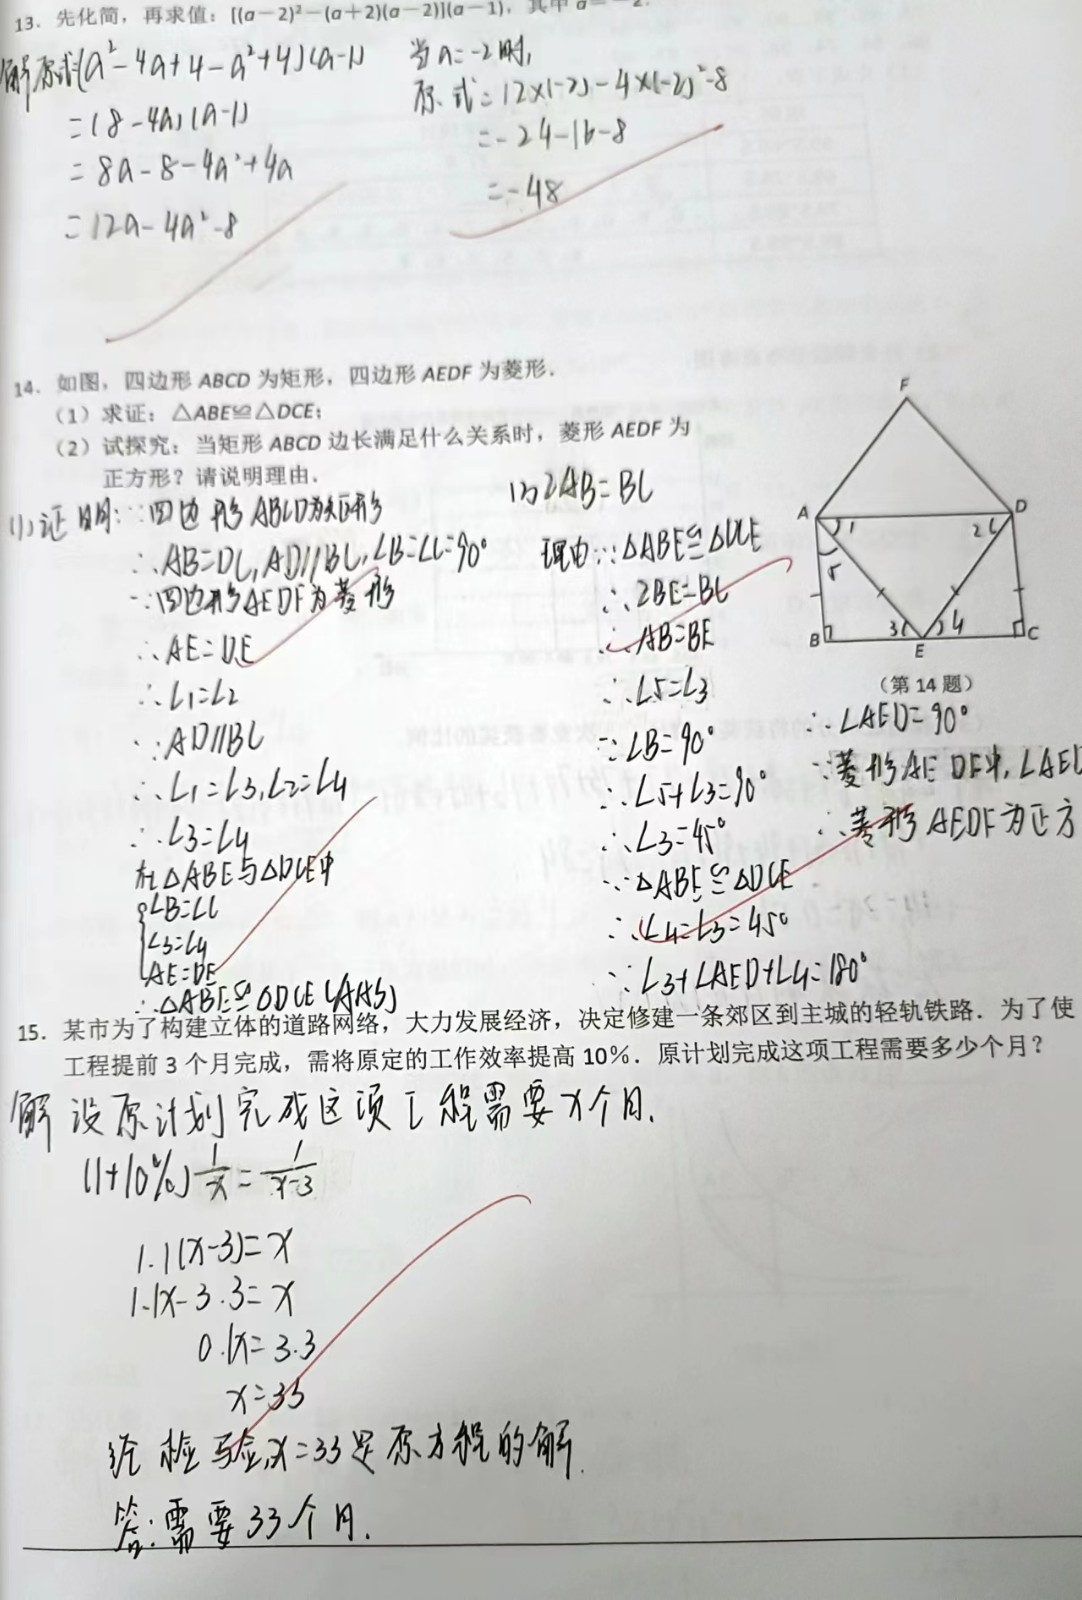 13. 先化简，再求值：[(a－2)²－(a＋2)(a－2)](a－1)，其中 a＝－2.
解原式(a²－4a＋4－a²＋4)(a－1)
＝(8－4a)(a－1)
＝8a－8－4a²＋4a
＝12a－4a²－8
当a＝－2时，
原式＝12×(－2)－4×(－2)²－8
＝－24－16－8
＝－48
14. 如图，四边形 ABCD 为矩形，四边形 AEDF 为菱形.
（1）求证：△ABE≌△DCE；
（2）试探究：当矩形 ABCD 边长满足什么关系时，菱形 AEDF 为
正方形？请说明理由.
(1)证明：∵四边形ABCD为矩形
∴AB=DC,AD//BC,∠B=∠C=90°
∵四边形AEDF为菱形
∴AE=DE
∴∠1=∠2
∵AD//BC
∴∠1=∠3,∠2=∠4
∴∠3=∠4
在△ABE与△DCE中
∠B=∠C
∠3=∠4
AE=DE
∴△ABE≌△DCE(AAS)
2AB=BC
理由：∵△ABE≌△DCE
∴2BE=BC
∴AB=BE
∴∠5=∠3
∵∠B=90°
∴∠5+∠3=90°
∴∠3=45°
∵△ABE≌△DCE
∴∠4=∠3=45°
∵∠3+∠AED+∠4=180°
∴∠AED=90°
∵菱形AEDF中,∠AED
∴菱形AEDF为正方
F
A
D
1
2
5
3
4
B
E
C
（第 14 题）
15. 某市为了构建立体的道路网络，大力发展经济，决定修建一条郊区到主城的轻轨铁路．为了使
工程提前 3 个月完成，需将原定的工作效率提高 10%．原计划完成这项工程需要多少个月？
解 设原计划完成这项工程需要x个月.
(1+10%)1/x=1/(x-3)
1.1(x-3)=x
1.1x-3.3=x
0.1x=3.3
x=33
经检验,x=33是原方程的解.
答:需要33个月.